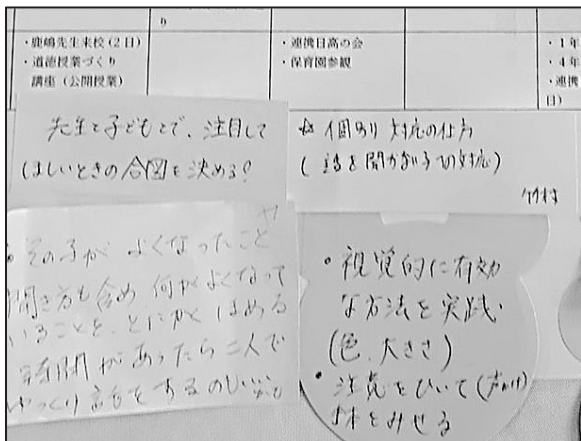 り
・鹿嶋先生来校(2日)
・道徳授業づくり
講座(公開授業)
・連携日高の会
・保育園参観
・1年
・4年
・連携
日)
先生と子どもとで、注目して
ほしいときの合図を決める!
☆個別 対応の仕方
(話を聞かない子の対応)
竹村
その子が よくなったこと
聞き方も含め 何がよくなって
いることを、とにかく ほめる
時間があったら二人で
ゆっくり話をするのもいい
・視覚的に有効
な方法を実践
(色、大きさ)
・注意をひいて(声かけ)
をみせる